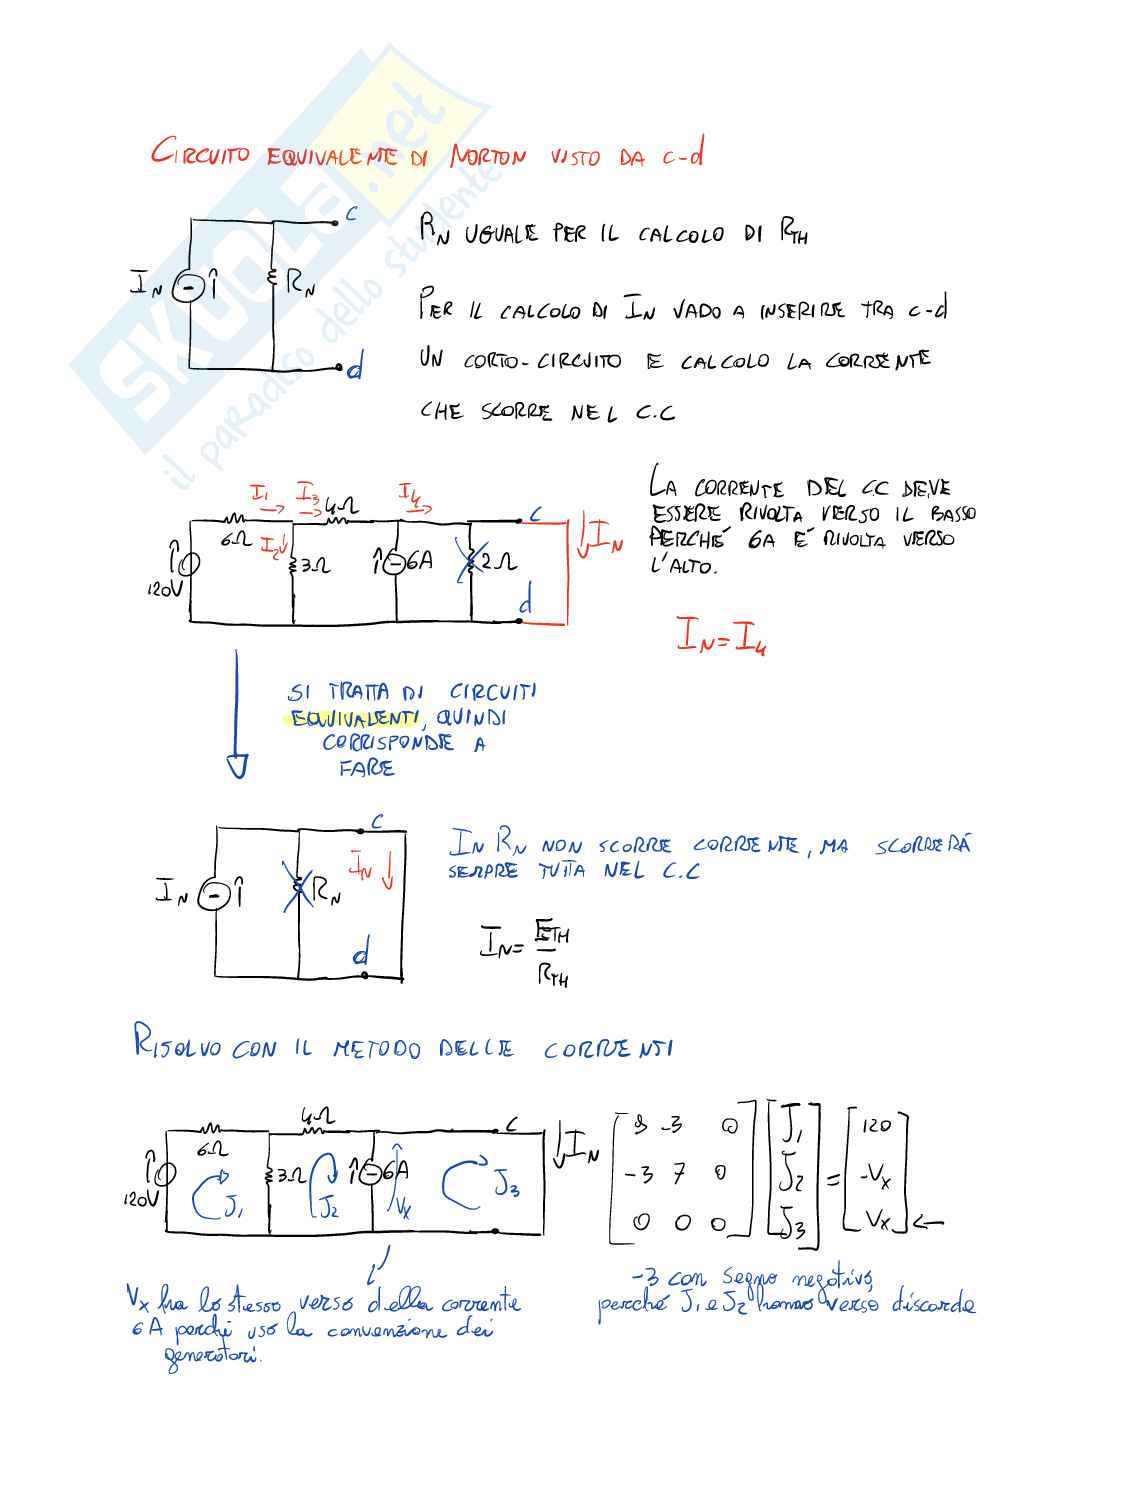 SKUOLA.net
il paradiso dello studente
CIRCUITO EQUIVALENTE DI NORTON VISTO DA c-d
c
IN
RN
d
RN UGUALE PER IL CALCOLO DI RTH
PER IL CALCOLO DI IN VADO A INSERIRE TRA c-d
UN CORTO-CIRCUITO E CALCOLO LA CORRENTE
CHE SCORRE NEL C.C
I1
I3
4Ω
I4
c
6Ω
I2
3Ω
6A
2Ω
IN
120V
d
LA CORRENTE DEL C.C DEVE
ESSERE RIVOLTA VERSO IL BASSO
PERCHÉ 6A É RIVOLTA VERSO
L'ALTO.
IN=I4
SI TRATTA DI CIRCUITI
EQUIVALENTI, QUINDI
CORRISPONDE A
FARE
c
IN
RN
IN
d
IN RN NON SCORRE CORRENTE, MA SCORRERÁ
SEMPRE TUTTA NEL C.C
IN= ETH
RTH
RISOLVO CON IL METODO DELLE CORRENTI
4Ω
c
6Ω
3Ω
6A
IN
120V
J1
J2
VX
J3
9 -3 0 J1 120
-3 7 0 J2 = -VX
0 0 0 J3 VX ←
VX ha lo stesso verso della corrente
6A perché uso la convenzione dei
generatori.
-3 con segno negativo,
perché J1 e J2 hanno verso discorde